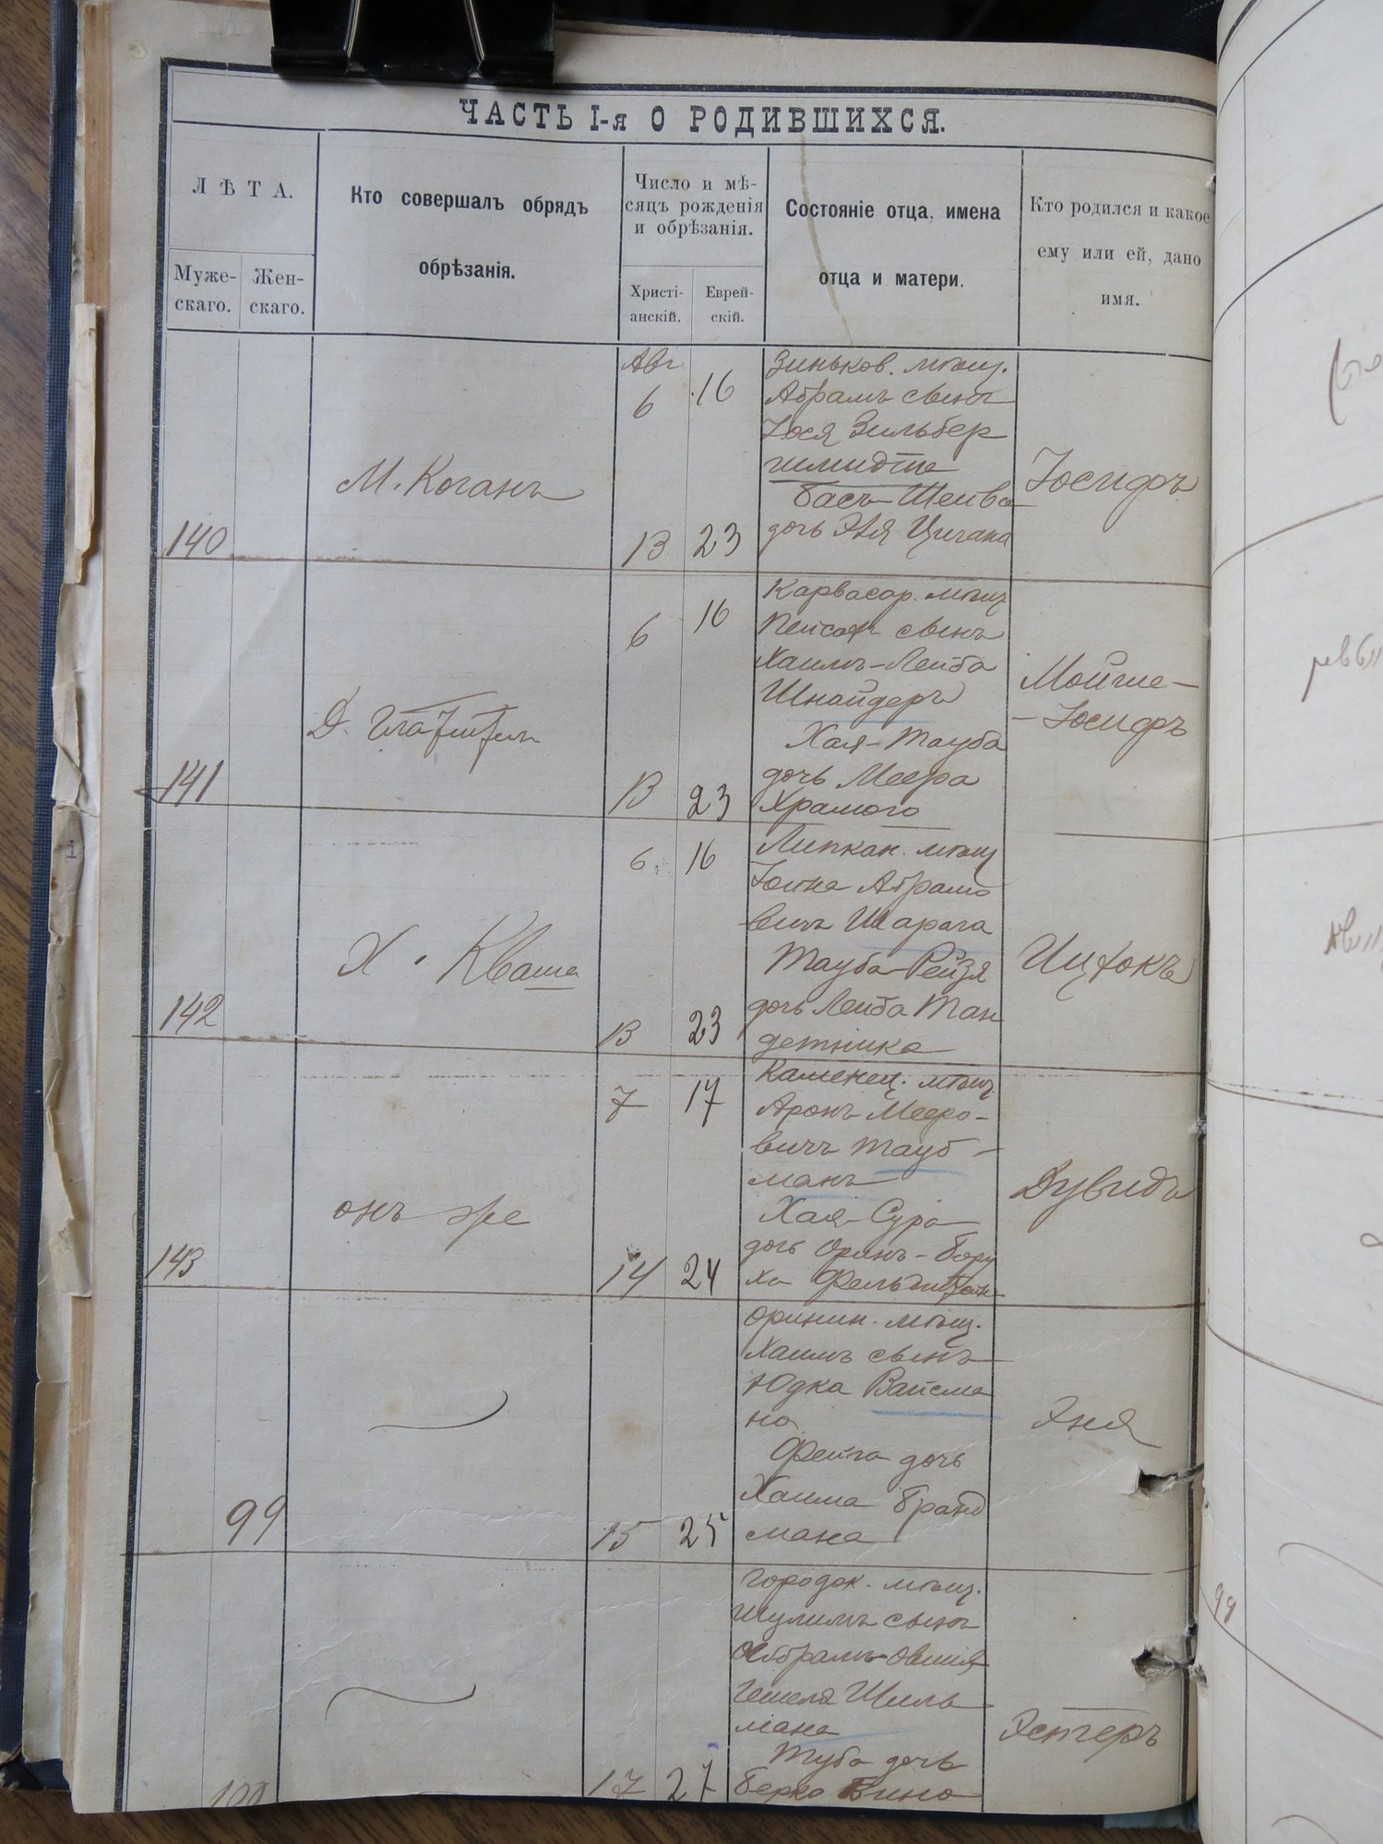 ЧАСТЬ I-я О РОДИВШИХСЯ.
ЛѢТА.
Муже-
скаго.
Жен-
скаго.
Кто совершалъ обрядъ
обрѣзанія.
Число и мѣ-
сяцъ рожденія
и обрѣзанія.
Христі-
анскій.
Еврей-
скій.
Состояніе отца, имена
отца и матери.
Кто родился и какое
ему или ей, дано
имя.
140
М. Коганъ
Авг
6 16
13 23
Зиньков. мѣщ.
Абрамъ сынъ
Іося Зильбер
шмидта
Бася-Шейва
дочь Эля Цигана
Іосифъ
141
Д.
6 16
13 23
Карвасар. мѣщ
Пейсах сынъ
Хаимъ-Лейба
Шнайдеръ
Хая-Тауба
дочь Меера
Храмого
Мойше-
-Іосифъ
142
Х. Кваша
6 16
13 23
Липкан. мѣщ
Іойна Абрамо
вичъ Шарага
Тауба-Рейзя
дочь Лейба Тан
детника
Ицхокъ
143
онъ же
7 17
14 24
Каменец. мѣщ
Аронъ Мееро-
вичъ Тауб-
манъ
Хая-Сура
дочь Оринъ-Бору
ха
Дувидъ
99
15 25
Оринин. мѣщ.
Хаимъ сынъ
Юдка Вайсма
на
Фейга дочь
Хаима Бранд
мана
Эня
100
17 27
Городок. мѣщ.
Шулимъ сынъ
Абрамъ-Овшия
Гешеля Шиль
мана
Туба дочь
Берко Вино
Эстеръ
99